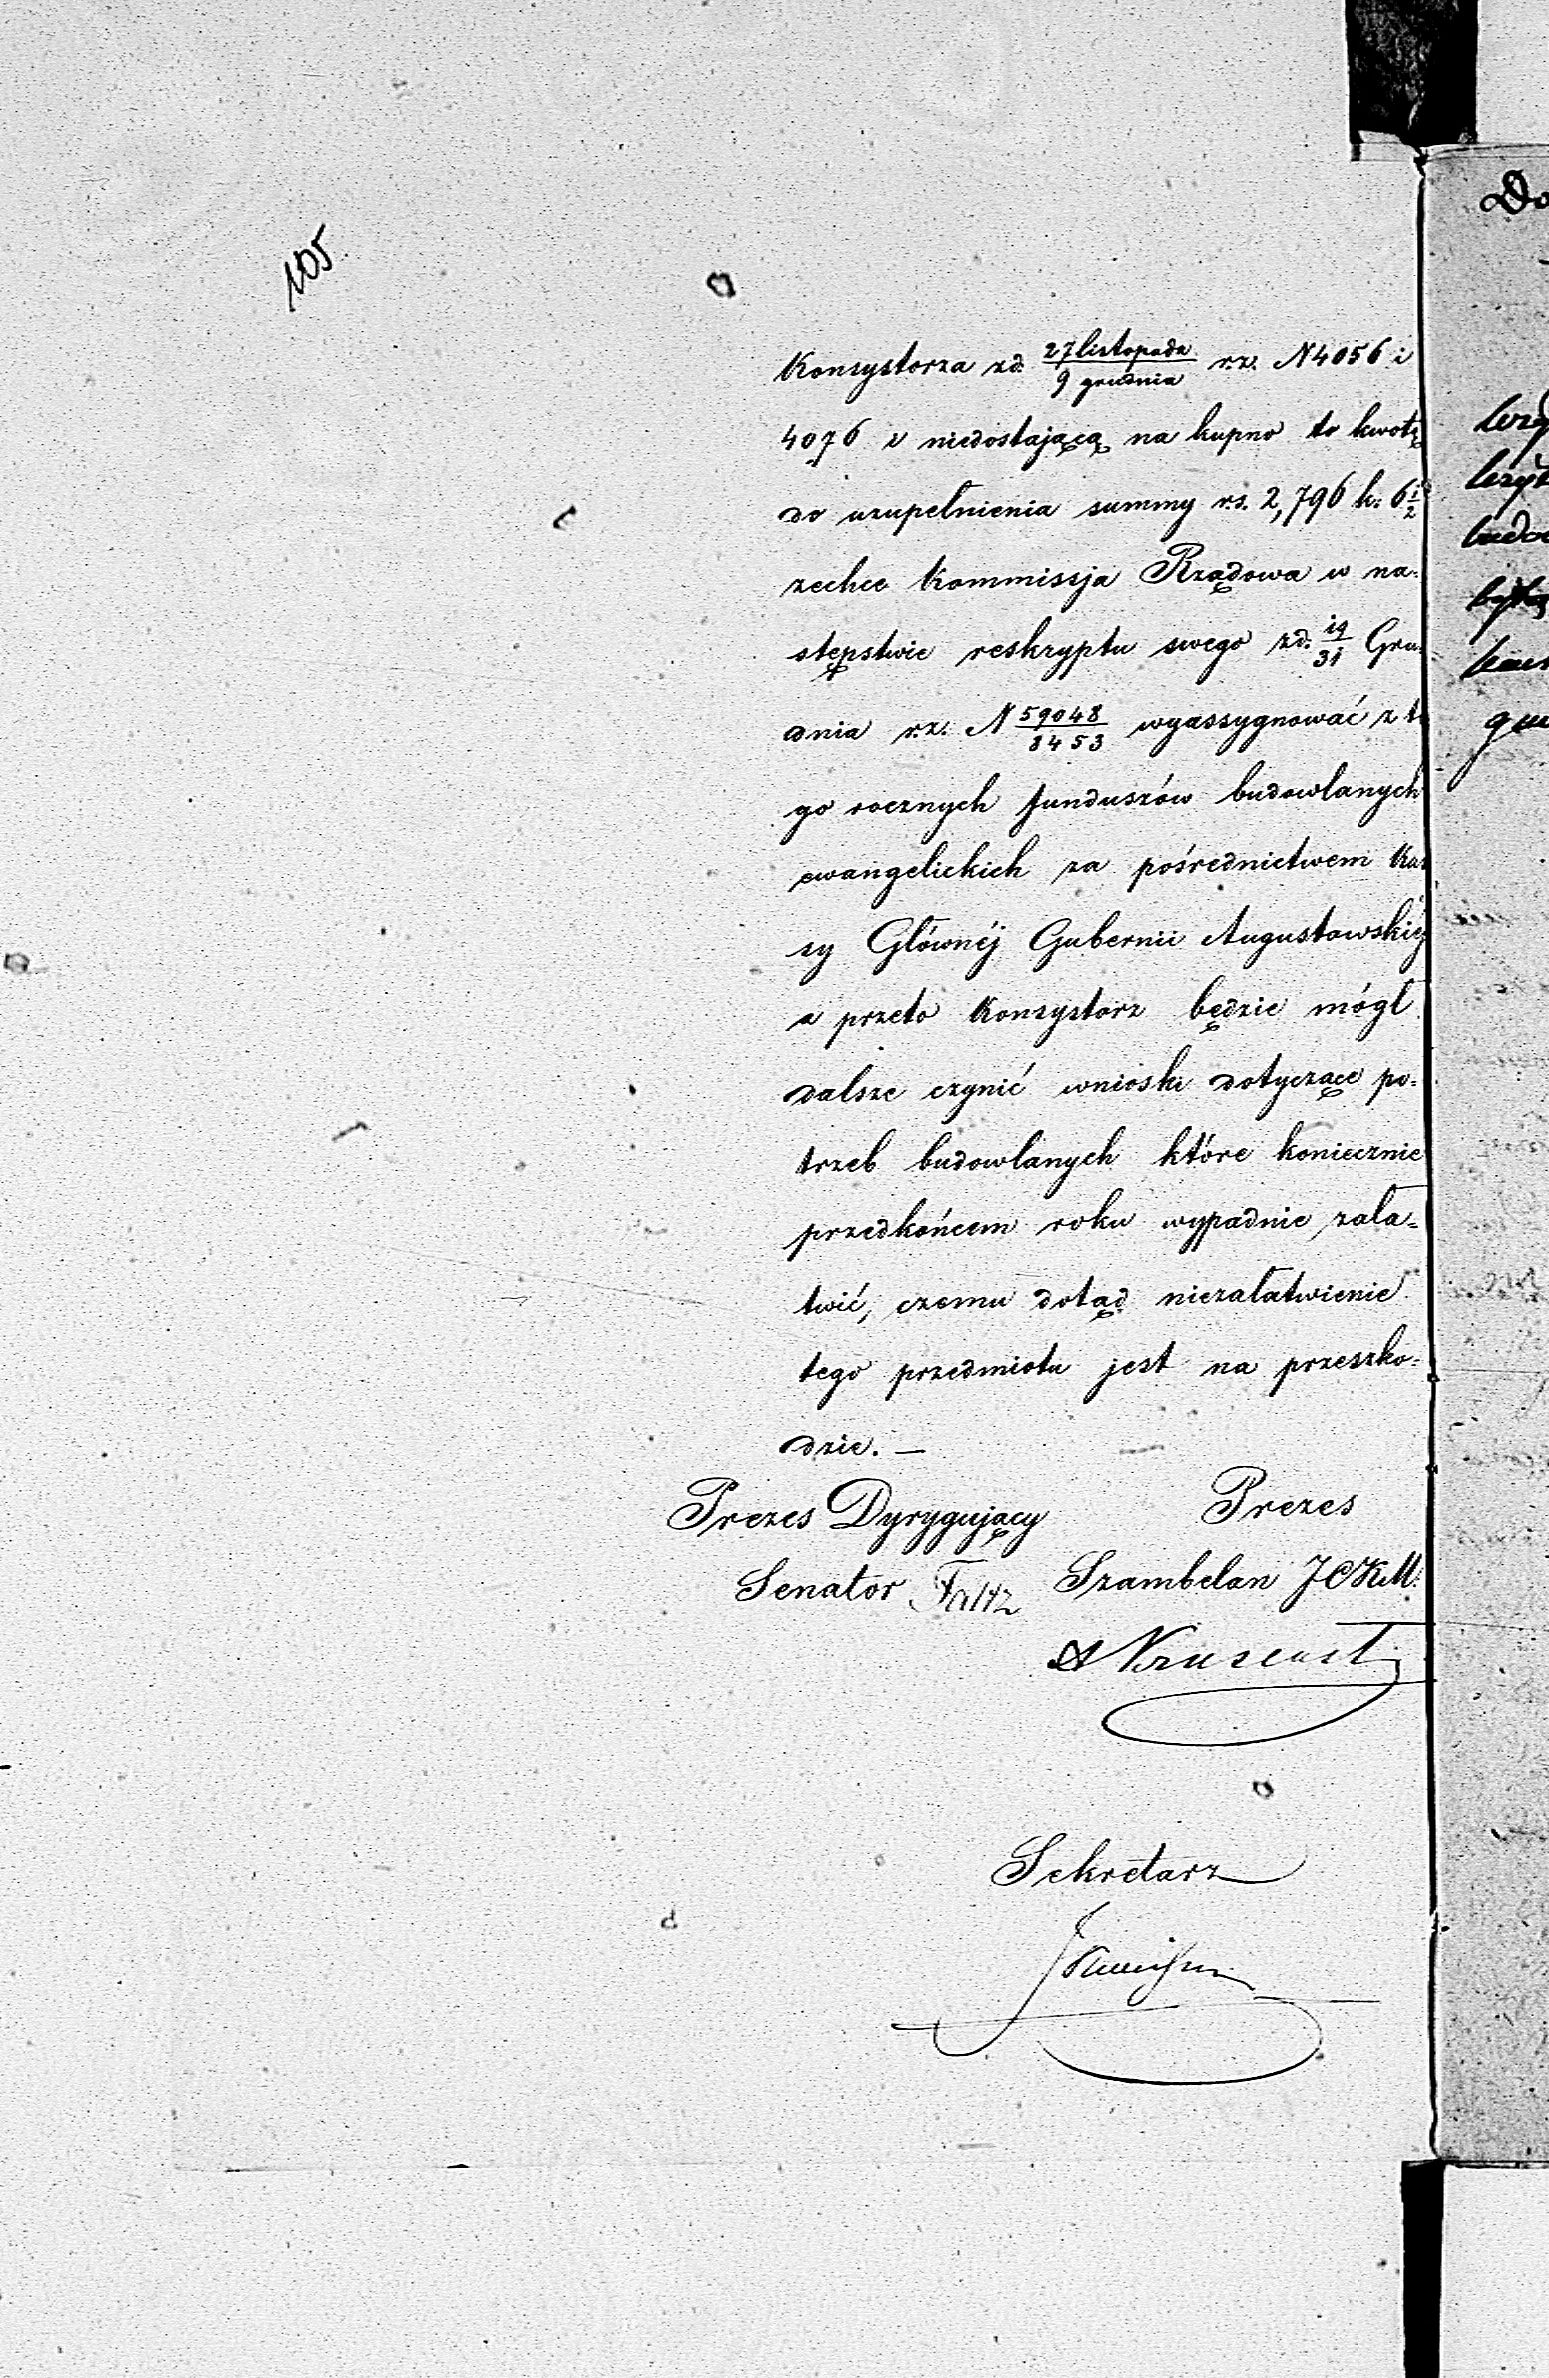 105.
Konsystorza zd. 27 listopada / 9 grudnia r.z. N 4056 i
4076 i niedostającą na kupno to kwotę
do uzupełnienia summy rs. 2,796 k. 6 1/2
zechce Kommissja Rządowa w na-
stępstwie reskryptu swego zd. 19/31 Gru-
dnia r.z. N 59048/8453 wyassygnować z te
go rocznych funduszów budowlanych
ewangelickich za pośrednictwem Kas
sy Głównéj Gubernii Augustowskiéj
a przeto Konsystorz będzie mógł
dalsze czynić wnioski dotyczące po=
trzeb budowlanych które koniecznie
przedkońcem roku wypadnie zała=
twić, czemu dotąd niezałatwienie
tego przedmiotu jest na przeszko=
dzie. —
Prezes Dyrygujący Prezes
Senator Faltz Szambelan JCKM.
Sekretarz